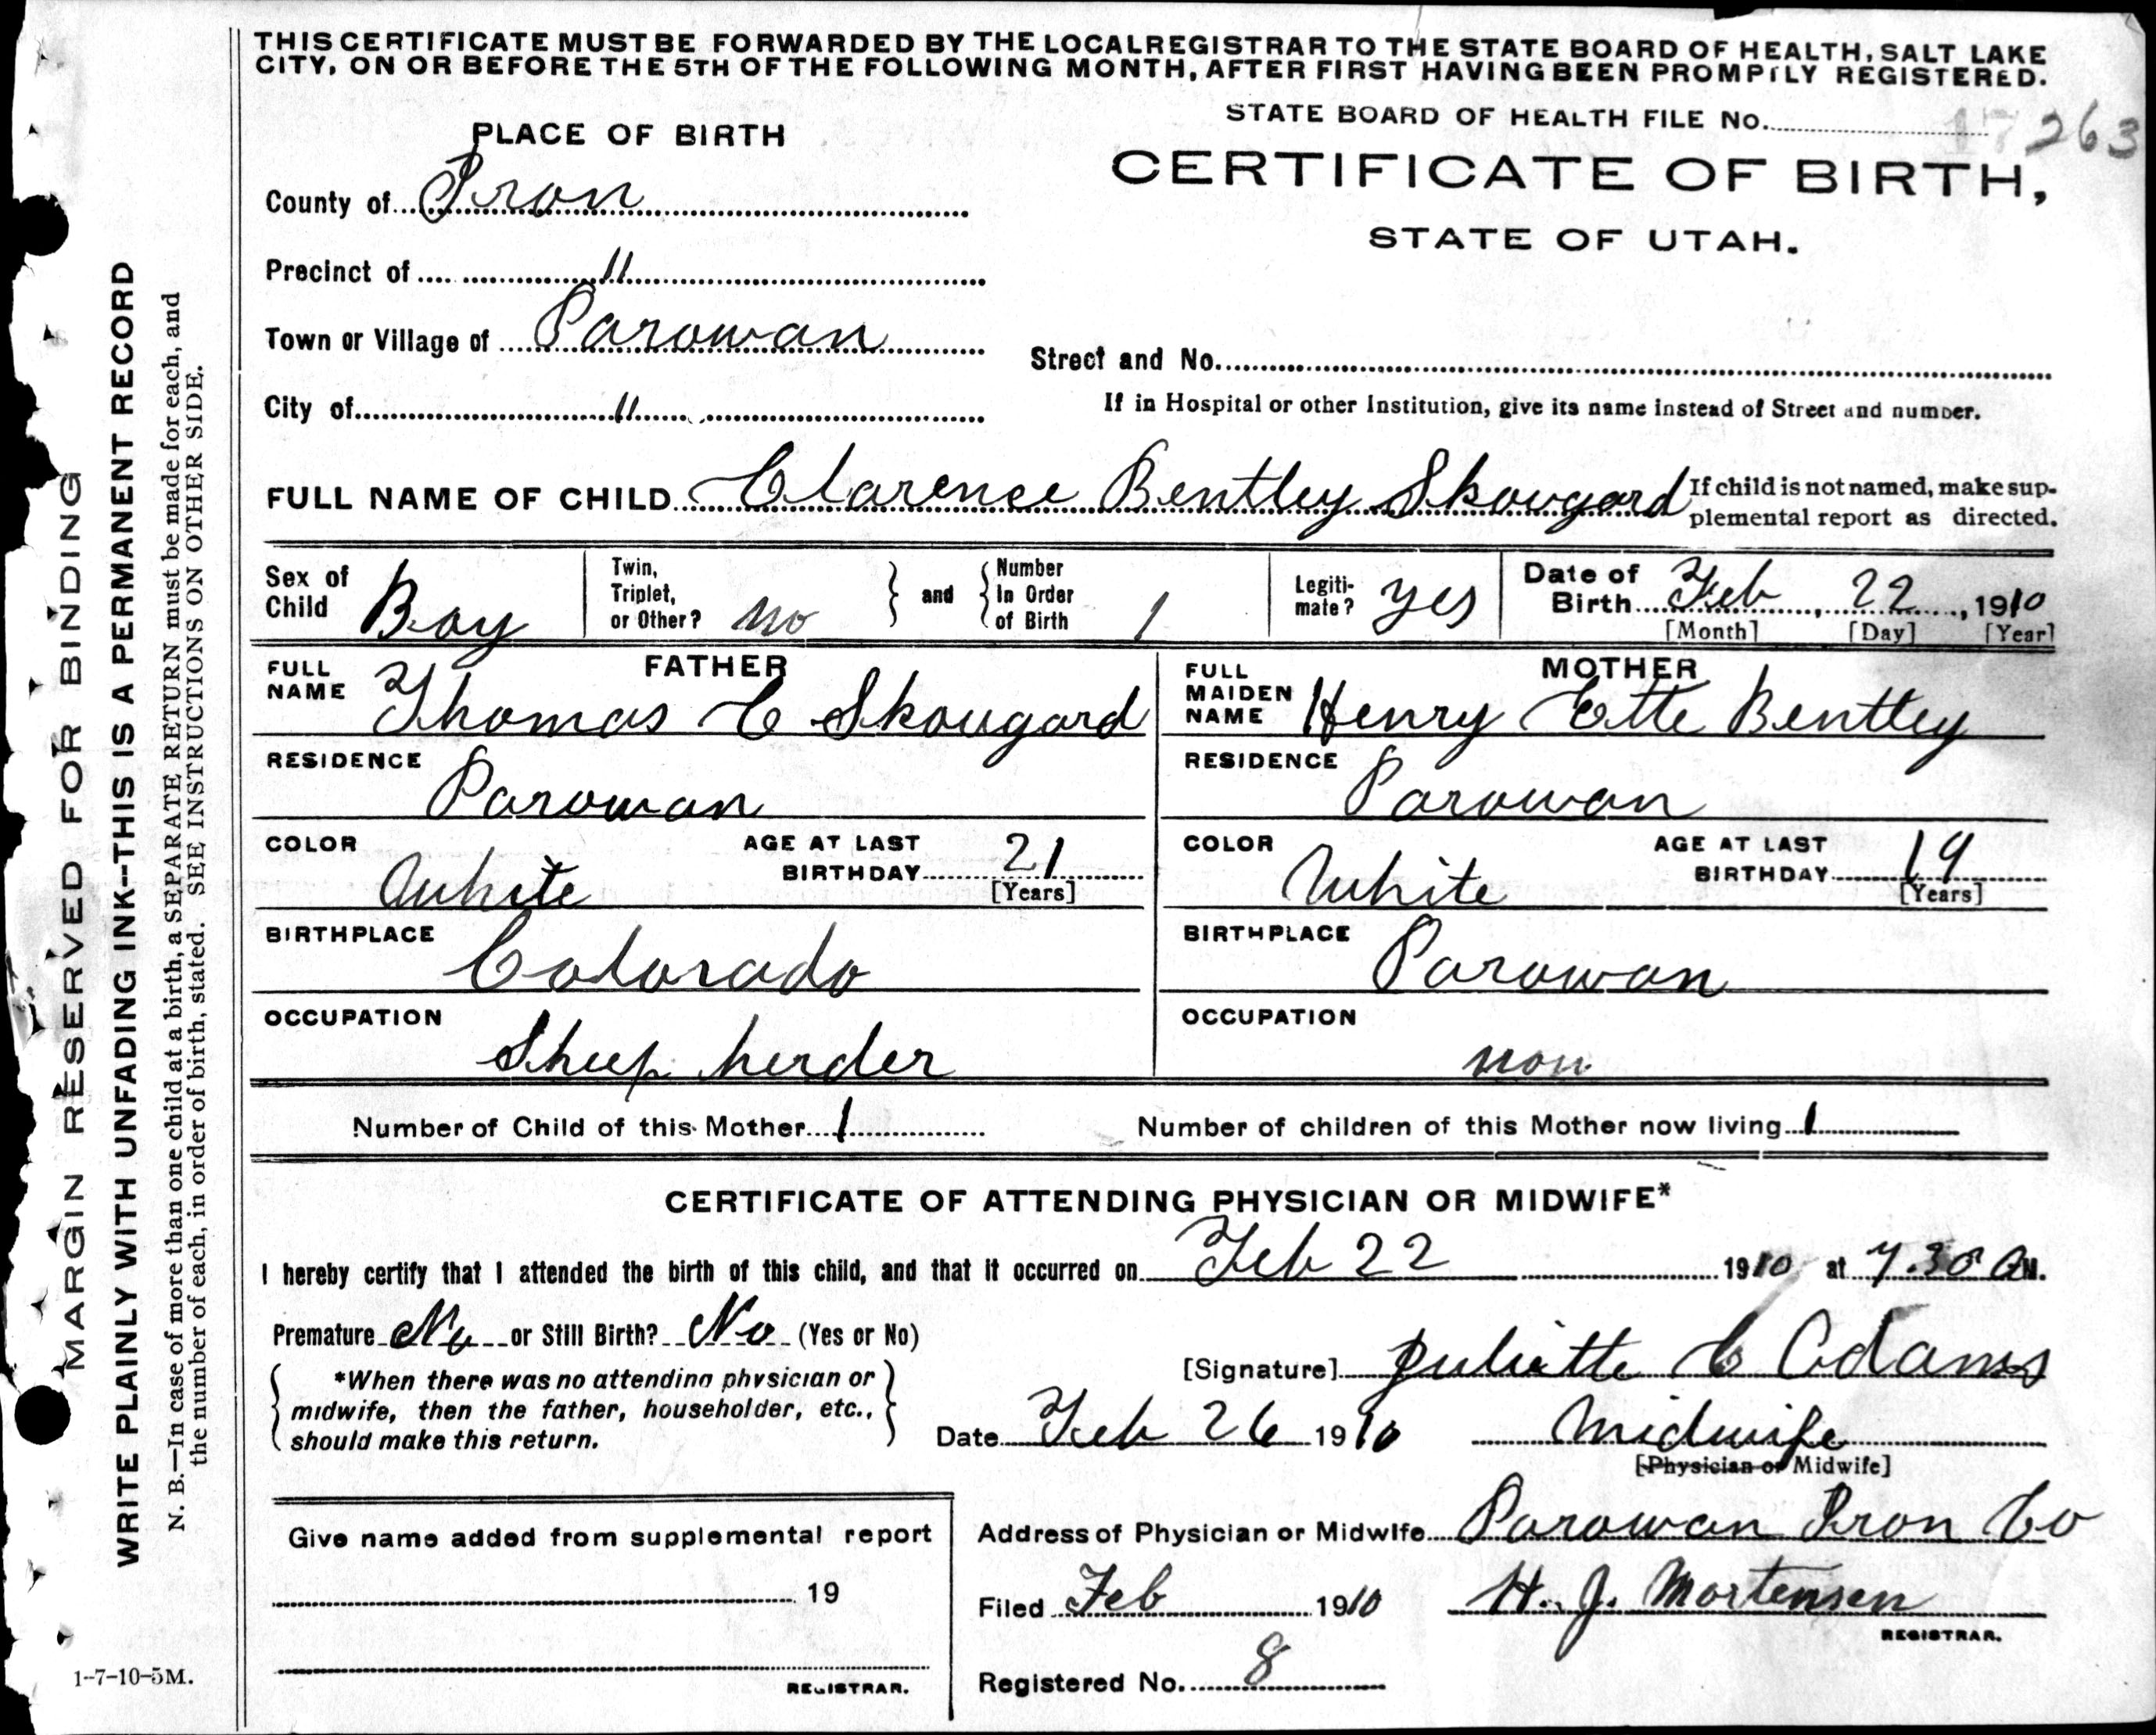 THIS CERTIFICATE MUST BE FORWARDED BY THE LOCAL REGISTRAR TO THE STATE BOARD OF HEALTH, SALT LAKE
CITY, ON OR BEFORE THE 5TH OF THE FOLLOWING MONTH, AFTER FIRST HAVING BEEN PROMPTLY REGISTERED.
STATE BOARD OF HEALTH FILE NO. 17263
PLACE OF BIRTH
CERTIFICATE OF BIRTH,
STATE OF UTAH.
County of Iron
Precinct of "
Town or Village of Parowan
Street and No.
City of "
If in Hospital or other Institution, give its name instead of Street and number.
FULL NAME OF CHILD Clarence Bentley Skougard
If child is not named, make sup-
plemental report as directed.
Sex of
Child Boy
Twin,
Triplet,
or Other? no
and
Number
In Order
of Birth 1
Legiti-
mate? yes
Date of
Birth Feb, 22, 1910
[Month] [Day] [Year]
FATHER
FULL
NAME Thomas C Skougard
MOTHER
FULL
MAIDEN
NAME Henry Ette Bentley
RESIDENCE
Parowan
RESIDENCE
Parowan
COLOR
White
AGE AT LAST
BIRTHDAY 21
[Years]
COLOR
White
AGE AT LAST
BIRTHDAY 19
[Years]
BIRTHPLACE
Colorado
BIRTHPLACE
Parowan
OCCUPATION
Sheep herder
OCCUPATION
non
Number of Child of this Mother 1
Number of children of this Mother now living 1
CERTIFICATE OF ATTENDING PHYSICIAN OR MIDWIFE*
I hereby certify that I attended the birth of this child, and that it occurred on Feb 22 1910 at 7.30 A M.
Premature No or Still Birth? No (Yes or No)
*When there was no attending physician or
midwife, then the father, householder, etc.,
should make this return.
[Signature] Juliette C Adams
Date Feb 26 1910
Midwife
[Physician or Midwife]
Give name added from supplemental report
19
REGISTRAR.
Address of Physician or Midwife Parowan Iron Co
Filed Feb 1910
H. J. Mortensen
REGISTRAR.
Registered No. 8
MARGIN RESERVED FOR BINDING
WRITE PLAINLY WITH UNFADING INK--THIS IS A PERMANENT RECORD
N. B.—In case of more than one child at a birth, a SEPARATE RETURN must be made for each, and
the number of each, in order of birth, stated. SEE INSTRUCTIONS ON OTHER SIDE.
1-7-10-5M.